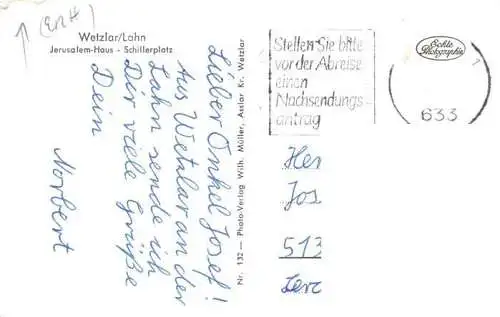 (ERH)
Wetzlar/Lahn
Jerusalem-Haus - Schillerplatz
Lieber Onkel Josef!
Aus Wetzlar an der
Lahn sende ich
Dir viele Grüße
Dein
Norbert
Nr. 132 — Photo-Verlag Wilh. Müller, Asslar Kr. Wetzlar
Stellen Sie bitte
vor der Abreise
einen
Nachsendungs-
antrag
Echte
Photographie
633
Her
Jos
513